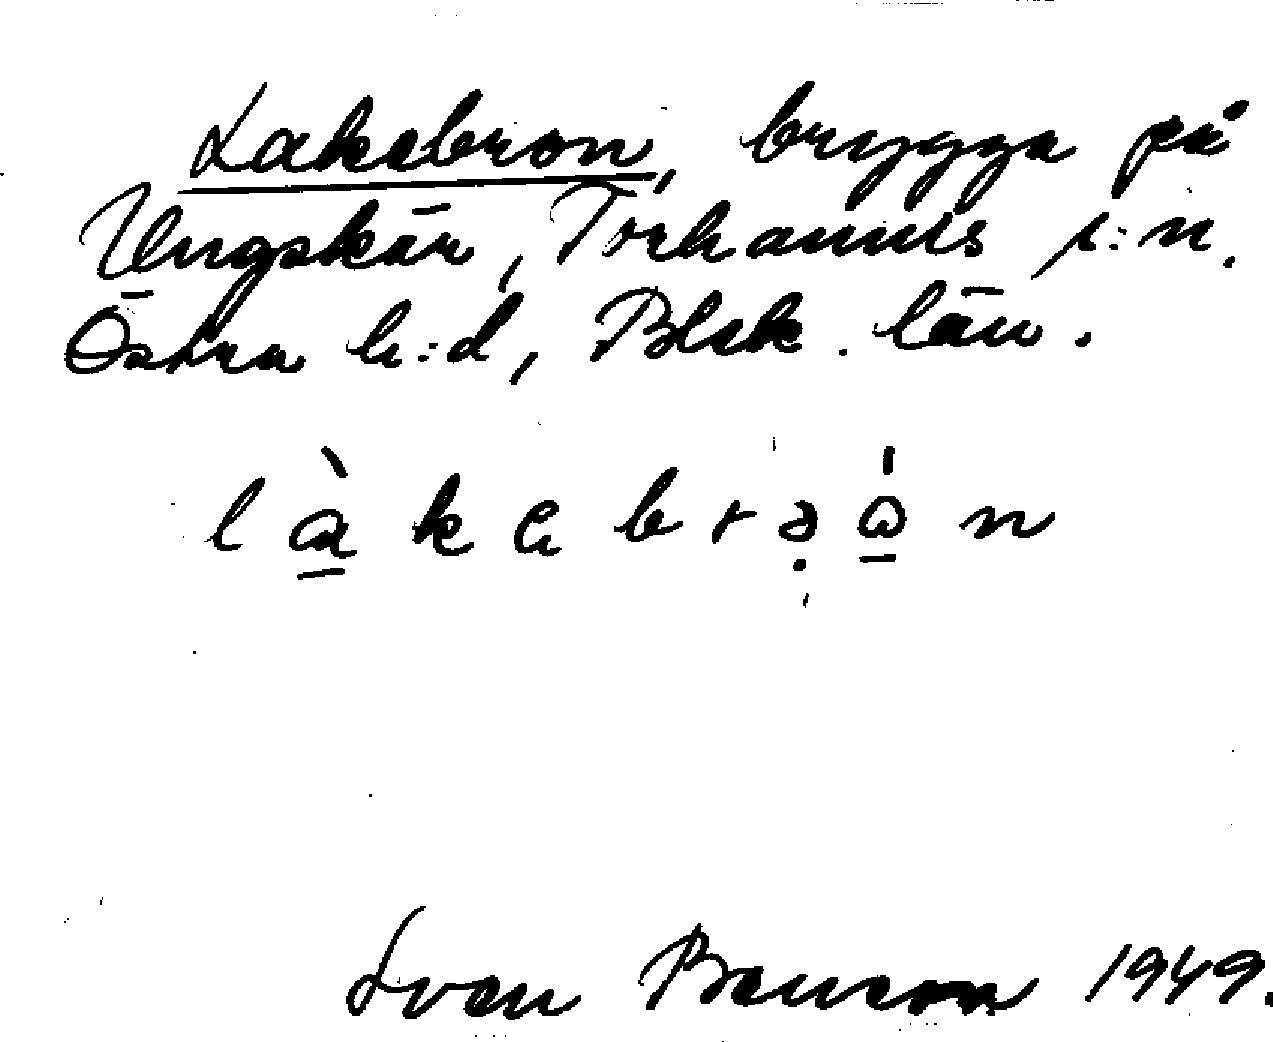 Lakabron, brygga på
Ungskär, Torhamns s:n.
Östra h:d, Blek. län.
Sven Benson 1949.